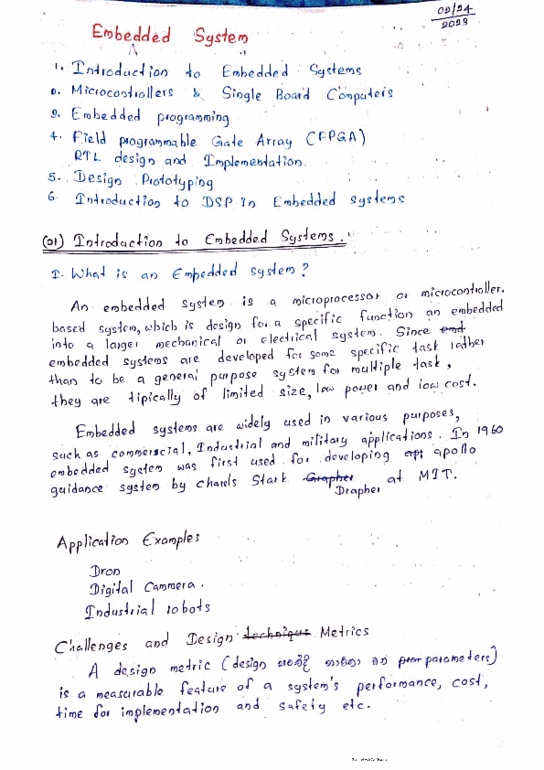 02/24
2023
Embedded System
1. Introduction to Embedded Systems
2. Microcontrollers & Single Board Computers
3. Embedded programming
4. Field programmable Gate Array (FPGA)
RTL design and Implementation.
5. Design Prototyping
6. Introduction to DSP in Embedded systems
(01) Introduction to Embedded Systems.
I. What is an Embedded system?
An embedded system is a microprocessor or microcontroller.
based system, which is design for a specific function an embedded
into a larger mechanical or electrical system. Since emd
embedded systems are developed for some specific task rather
than to be a general purpose system for multiple task,
they are tipically of limited size, low power and low cost.
Embedded systems are widely used in various purposes,
such as commercial, Industrial and military applications. In 1960
embedded system was first used for developing apt apollo
guidance system by charels Stark Grapher at MIT.
Drapher
Application Examples
Dron
Digital Cammera.
Industrial robots
Challenges and Design technique Metrics
A design metric (design parameters)
is a measurable feature of a system's performance, cost,
time for implementation and safety etc.